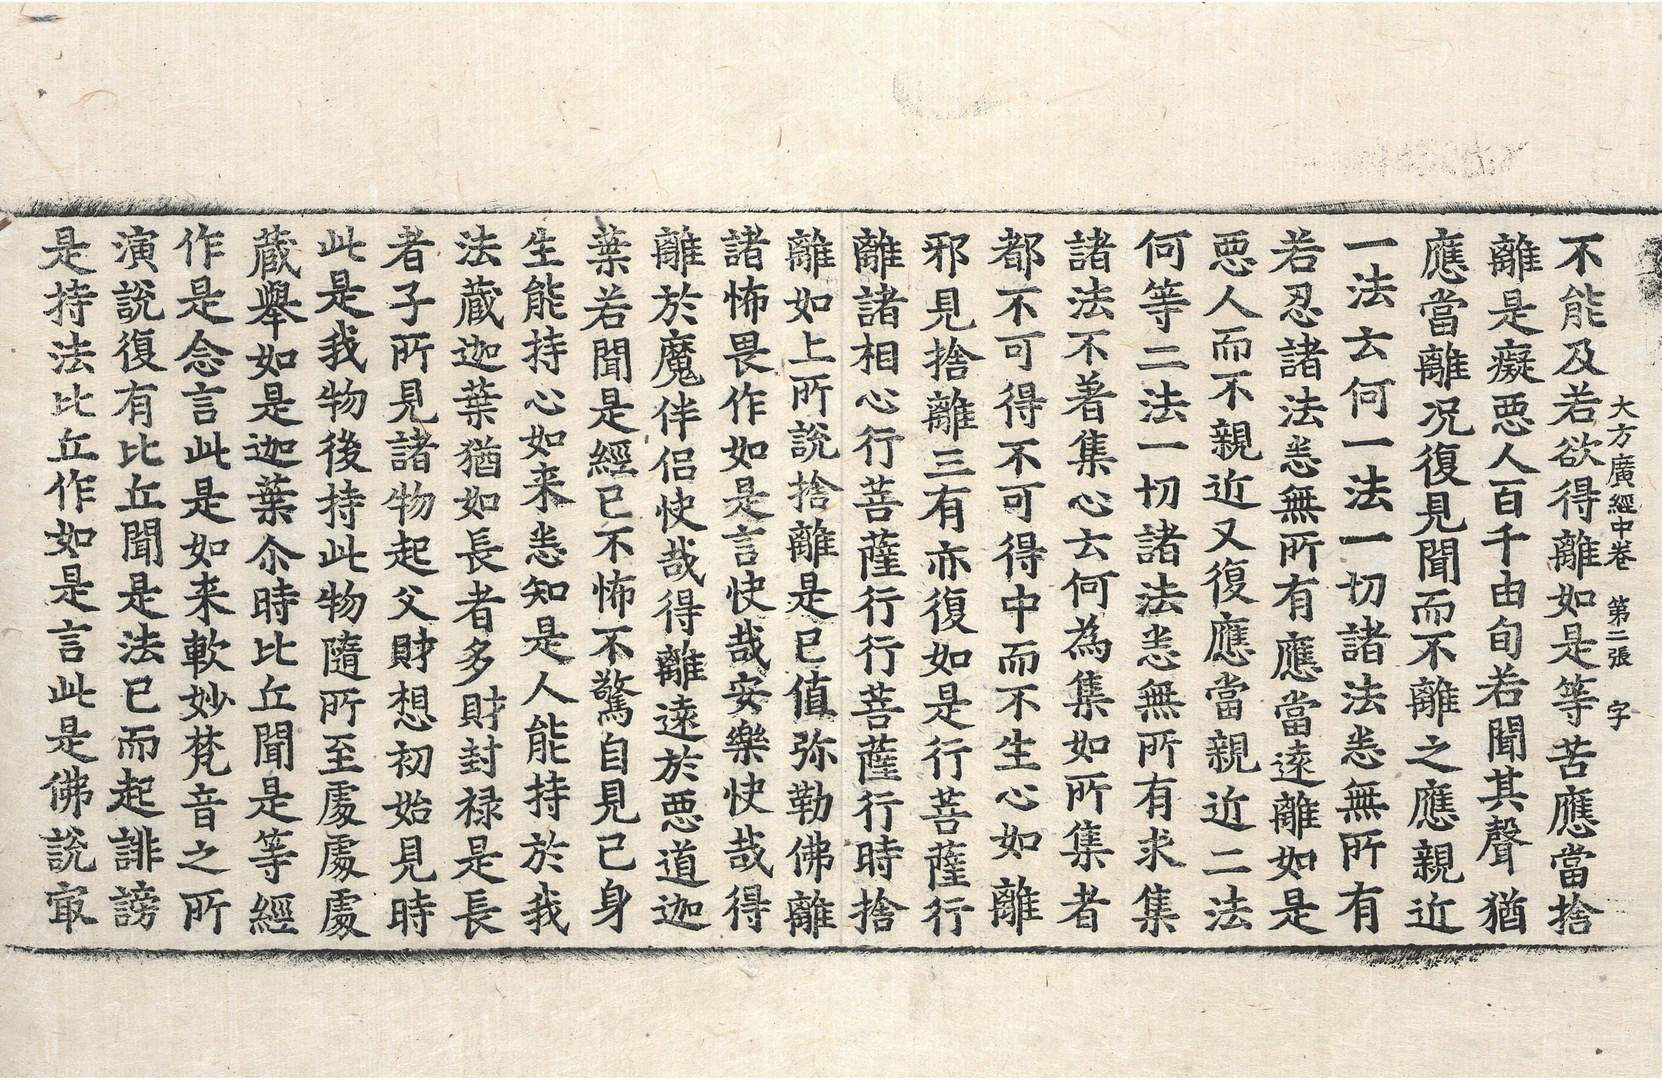 大方廣經中卷　第二張　字
不能及若欲得離如是等苦應當捨
離是癡惡人百千由旬若聞其聲猶
應當離况復見聞而不離之應親近
一法云何一法一切諸法悉無所有
若忍諸法悉無所有應當遠離如是
惡人而不親近又復應當親近二法
何等二法一切諸法悉無所有求集
諸法不著集心云何為集如所集者
都不可得不可得中而不生心如離
邪見捨離三有亦復如是行菩薩行
離諸相心行菩薩行行菩薩行時捨
離如上所說捨離是已值弥勒佛離
諸怖畏作如是言快哉安樂快哉得
離於魔伴侶快哉得離遠於惡道迦
葉若聞是經已不怖不驚自見己身
生能持心如来悉知是人能持於我
法藏迦葉猶如長者多財封禄是長
者子所見諸物起父財想初始見時
此是我物後持此物隨所至處處處
藏舉如是迦葉尒時比丘聞是等經
作是念言此是如来軟妙梵音之所
演說復有比丘聞是法已而起誹謗
是持法比丘作如是言此是佛說㝡